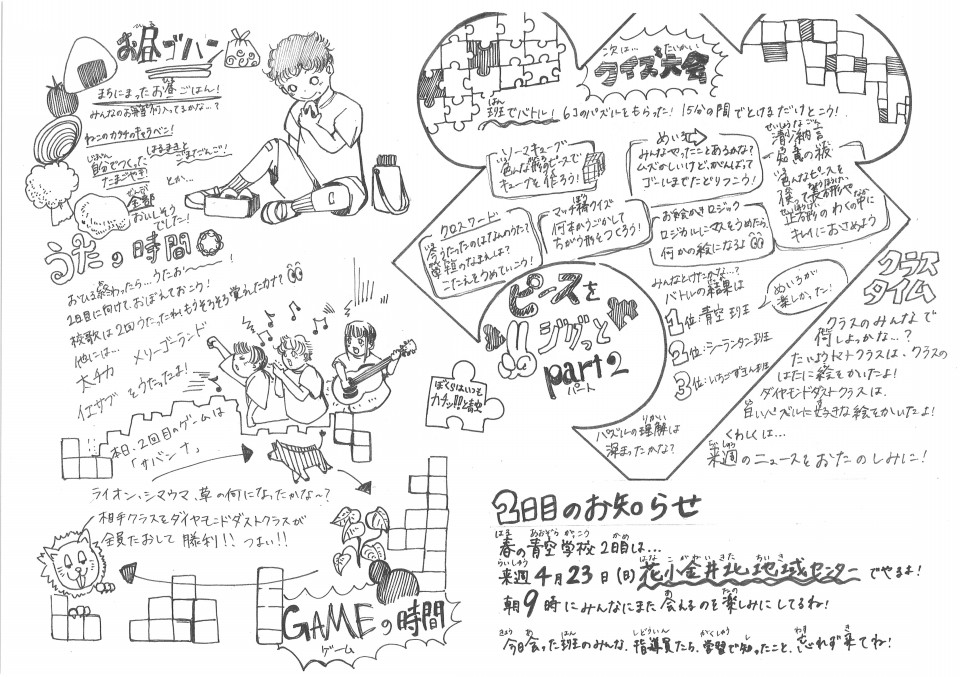 お昼ゴハン
まちにまったお昼ごはん!
みんなのお弁当何入ってるかな…?
ねこのカタチのキャラベン!
自分でつくったたまごやき!
はるまきとごまだんご!
とか…
全部
おいしそうでした!
うたの時間
おひる終わったら…うたおう〜!
2日目に向けて、おぼえておこう!
校歌は2回うたったね!もうそろそろ覚えたカナ?
他には…
太チカ メリーゴーランド
イエザブ をうたったよ!
本日、2回目のゲームは
「サバンナ」
ライオン、シマウマ、草の何になったかな〜?
相手クラスをダイヤモンドダストクラスが
全員たおして勝利!!つよい!!
GAMEの時間
ゲーム
次は…
クイズ大会
たいかい
班でバトル! 6コのパズルをもらった! 15分の間でとけるだけとこう!
はん
ソーマキューブ
色んな形のピースで
キューブを作ろう!
めいろ
みんなやったことあるかな?
ムズかしいけど、がんばって
ゴールまでたどりつこう!
せいしょうなごん
清少納言
知恵の板
色んなピースを
使って長方形や
正方形のわくの中に
キレイにおさめよう
クロスワード
今日うたったのはなんのうた?
こたえをうめていこう!
マッチ棒クイズ
何本かうごかして
ちがう形をつくろう!
お絵かきロジック
ロジカルにマスをうめたら
何かの絵になるよ
ピースを
ジグッと
part2
パート
ぼくらはいつも
カチッ!!と青空
みんなとけたかな…?
バトルの結果は
1位:青空 班
2位:シーランタン班
3位:いちごずきん班
めいろが
楽しかった!
りかい
パズルの理解は
深まったかな?
クラス
タイム
クラスのみんなで
何しよっかな…?
たいようセナクラスは、クラスの
はたに絵をかいたよ!
ダイヤモンドダストクラスは、
白いパズルに好きな絵をかいたよ!
くわしくは…
らいしゅう
来週のニュースをおたのしみに!
2日目のお知らせ
はる あおぞら がっこう かめ
春の青空学校2日目は…
らいしゅう はな こがねい きた ちいき
来週4月23日(日)花小金井北地域センターでやるよ!
あさ じ あ たの
朝9時にみんなにまた会えるのを楽しみにしてるね!
きょう あ はん しどういん がくしゅう し わす き
今日会った班のみんな、指導員たち、学習で知ったこと、忘れず来てね!